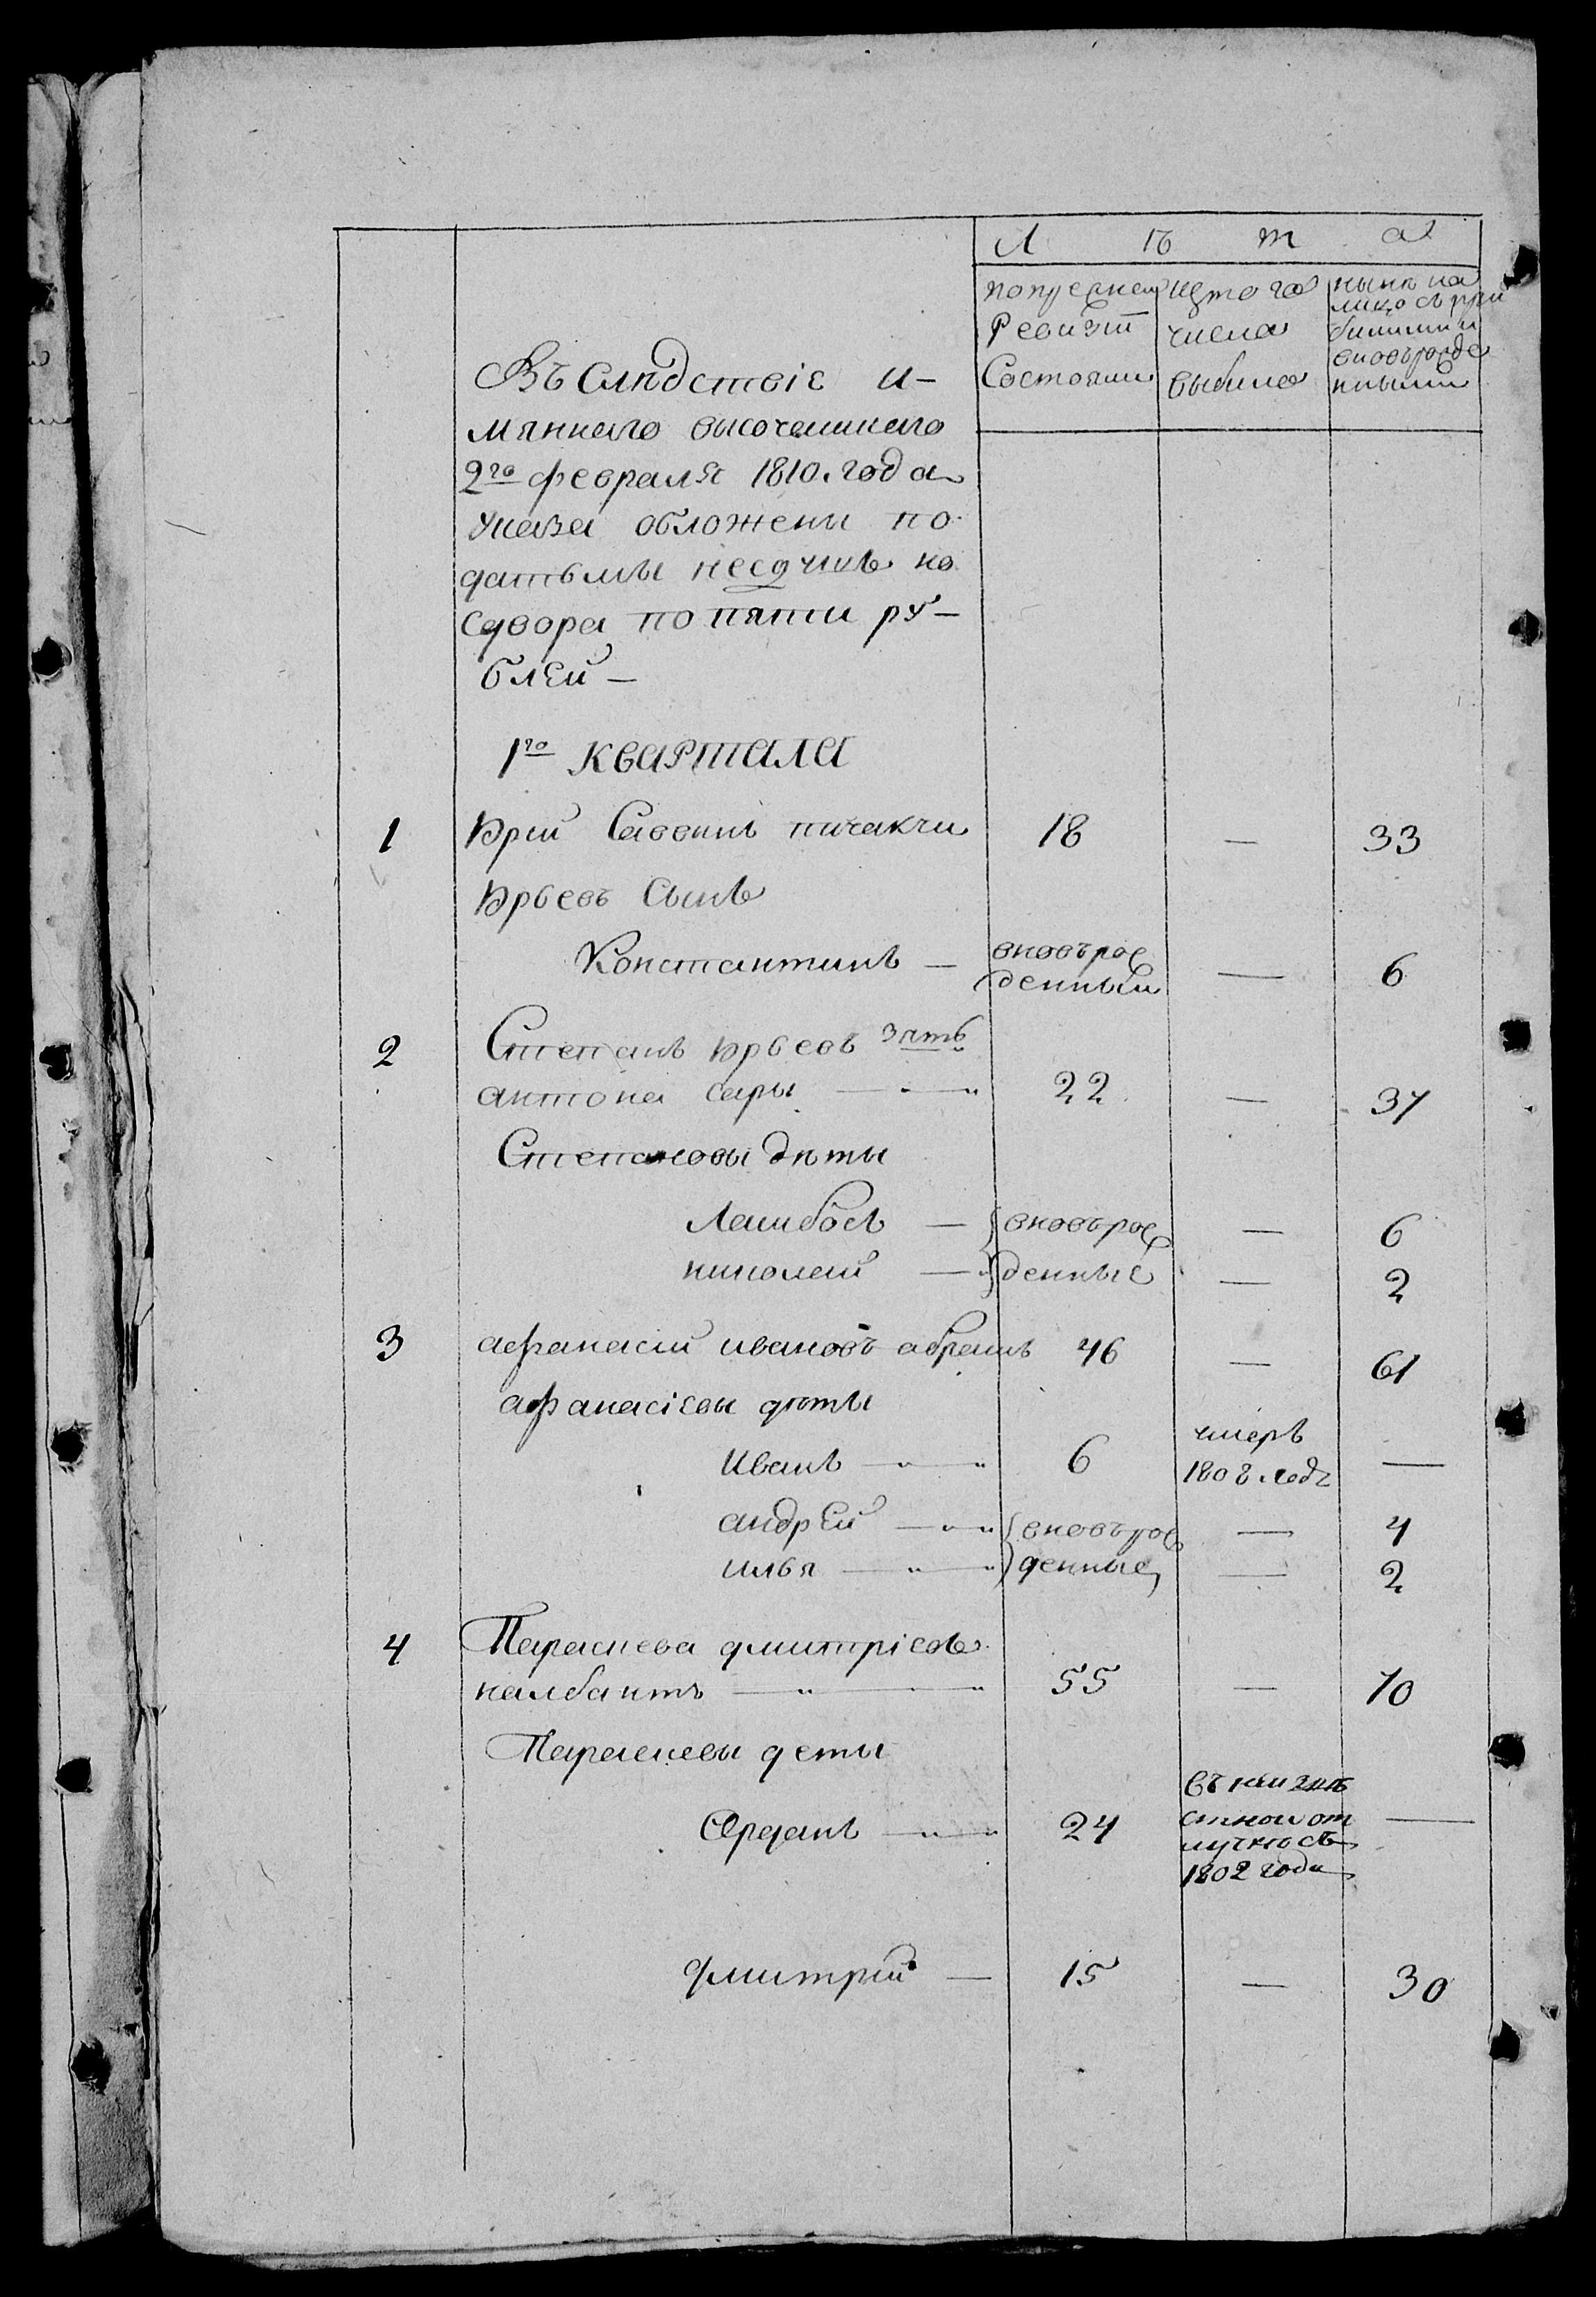 Л ѣ т а
попрежней Ревизіи Состояли
изтого числа выбыло
нынѣ на лицо съ при былыми и вновьрожде нными
Въ Слѣдствіе И-
мяннаго высочайшаго
2го февраля 1810. года
Указа обложены по
датьми несдушъ но
Сдвора по пяти ру-
блей —
1го квартала
1 Юрій Саввинъ пичакчи 18 — 33
Юрьевъ Сынъ
Константинъ — вновърож денный — 6
2 Степанъ Юрьевъ зять
антона сары — 22 — 37
Степановы дѣты
Ламбосъ — вновърож — 6
николай — денные — 2
3 афанасій ивановъ абрашъ 46 — 61
афанасіевы дѣты
Иванъ — 6 умеръ 1808 года —
андрей — вновърож — 4
илья — денные — 2
4 Параскева дмитріевъ
налбантъ — 55 — 70
Параскевы деты
Серданъ — 24 въ неизвѣ стной от лучкѣ съ 1802 года —
дмитрій — 15 — 30